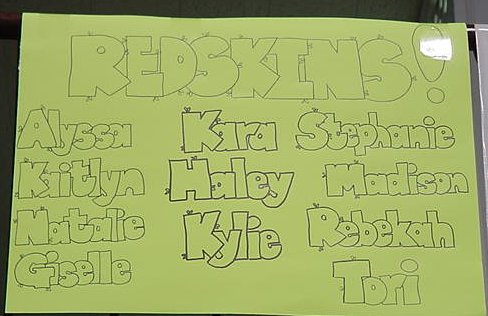 REDSKINS!
Alyssa Kara Stephanie
Kaitlyn Haley Madison
Natalie Kylie Rebekah
Giselle Tori